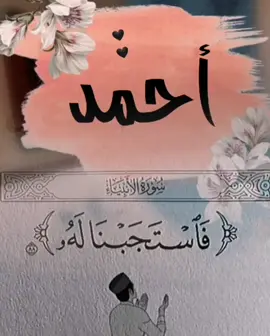 أحمد
سُورَةُ الأَنْبِيَاءِ
﴿فَٱسْتَجَبْنَا لَهُۥ﴾